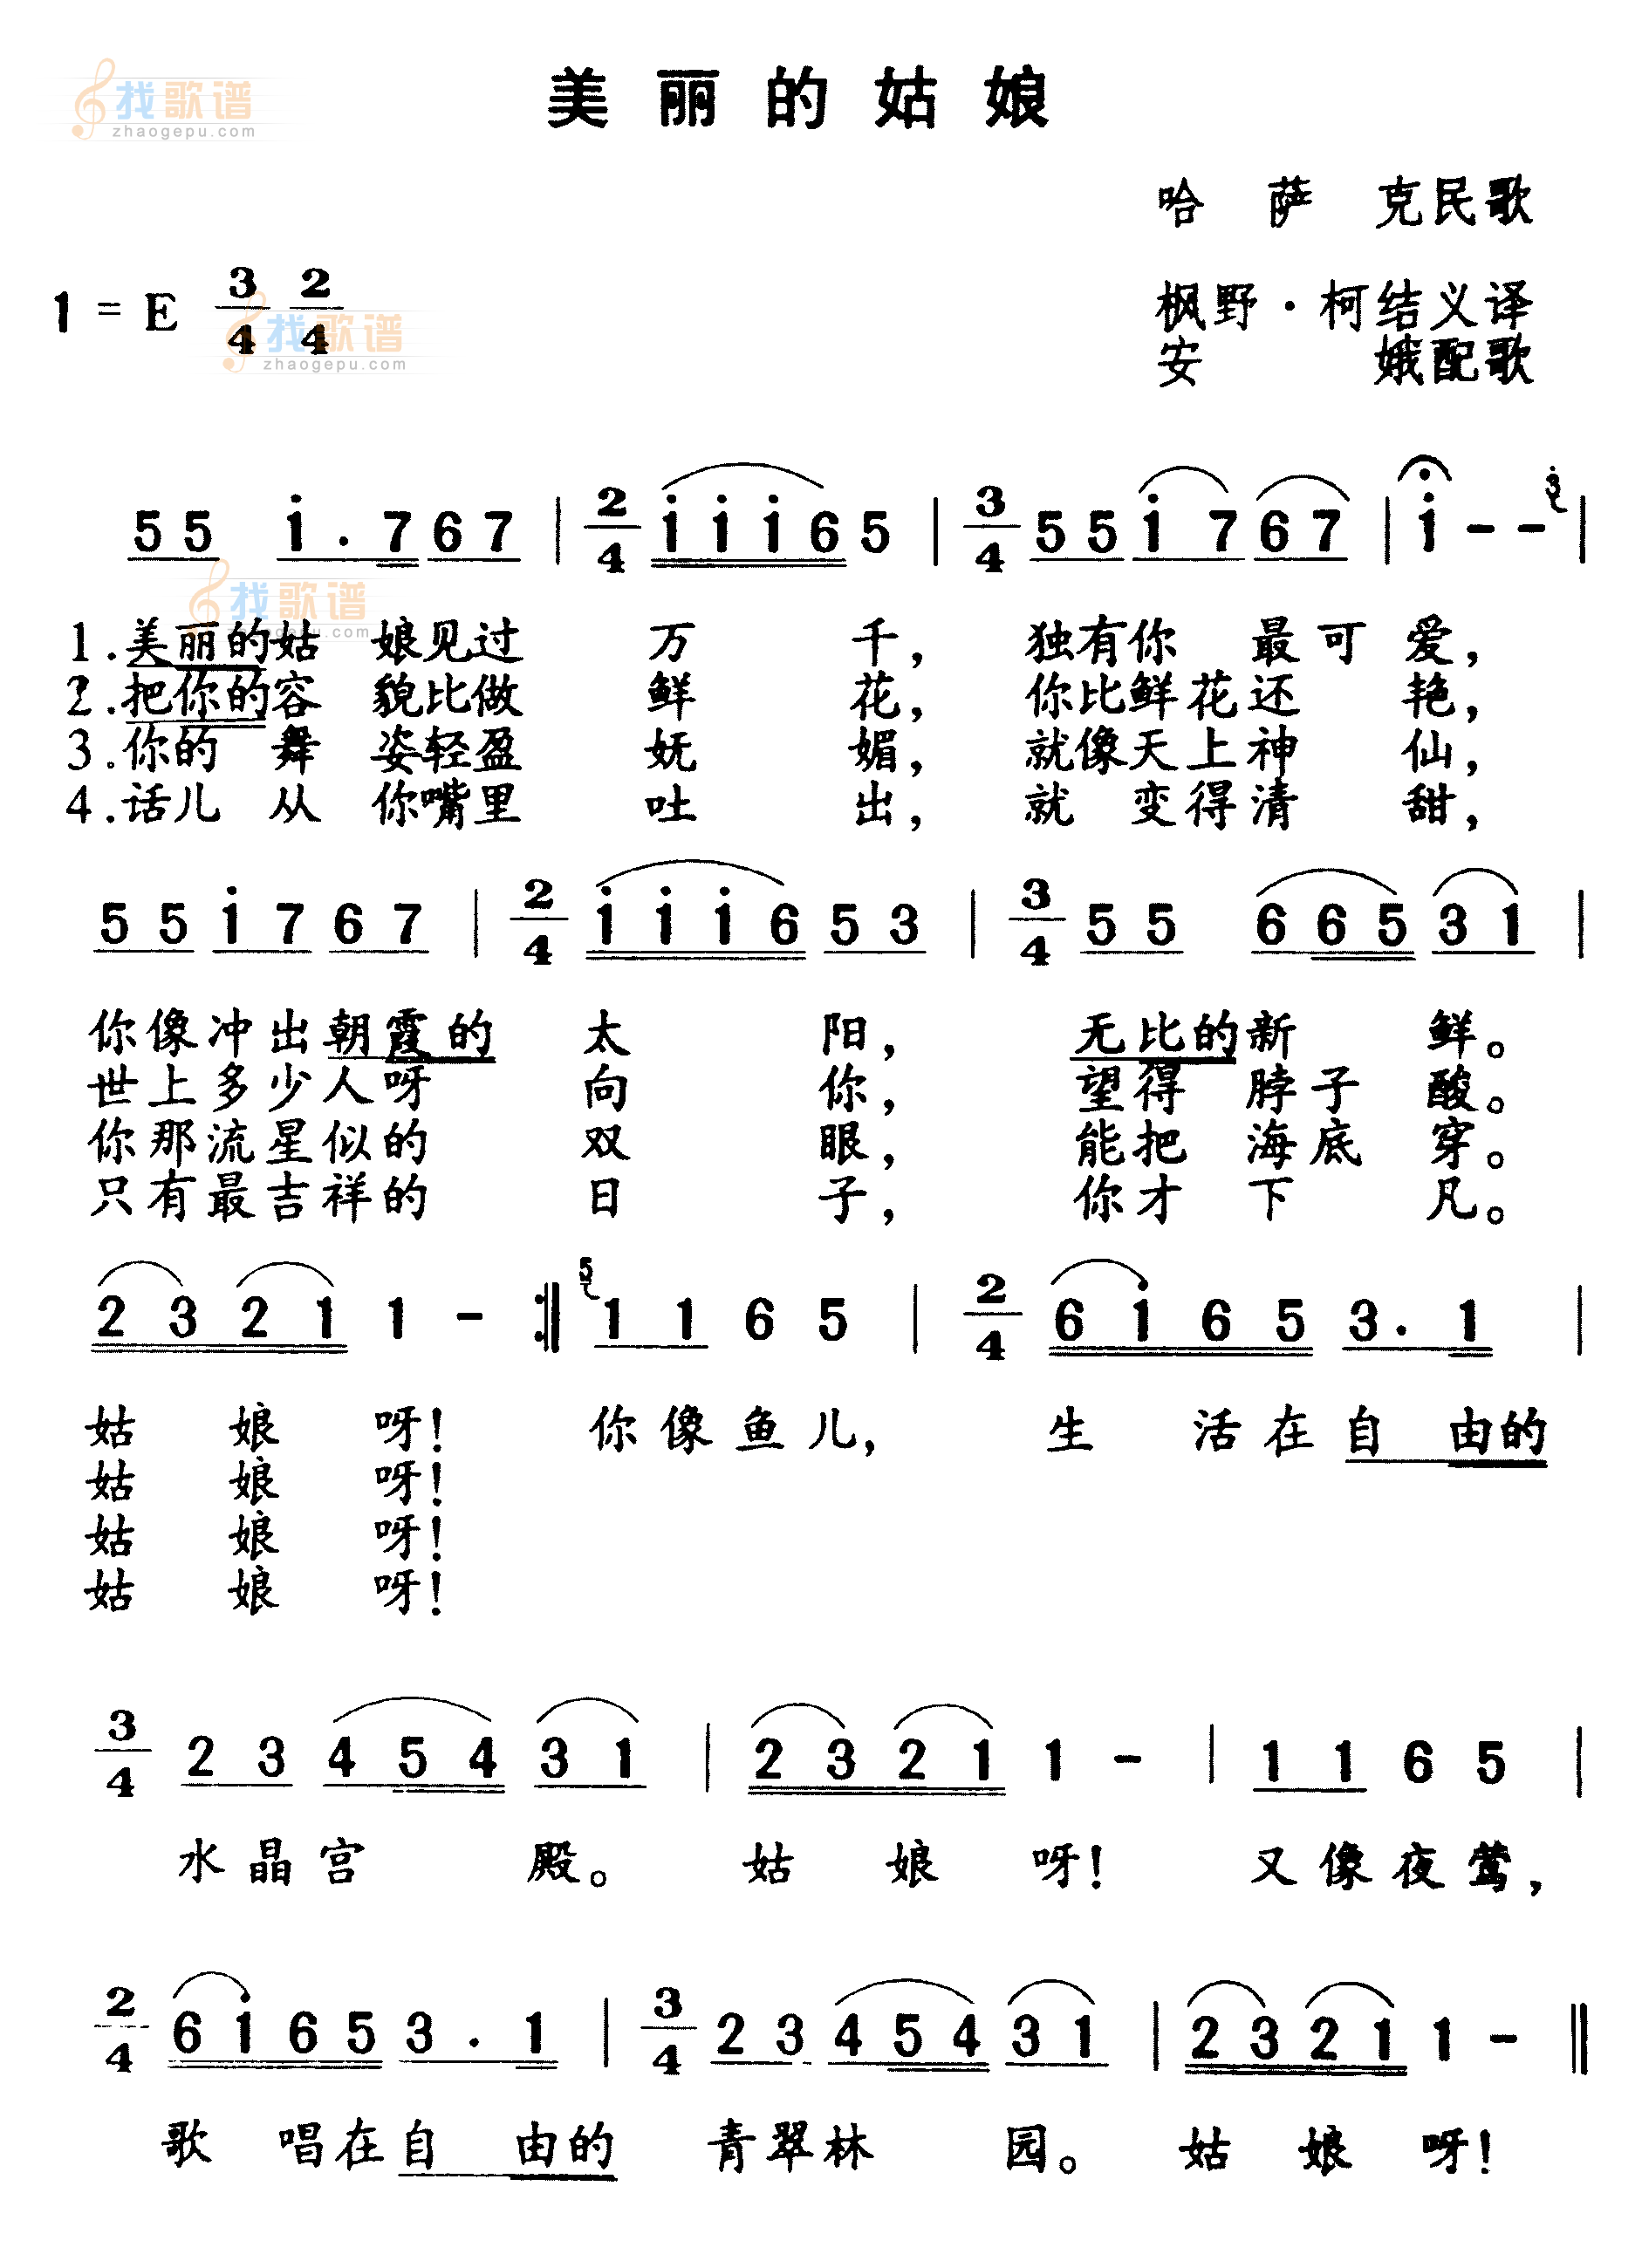 找歌谱
zhaogepu.com
美丽的姑娘
哈萨克民歌
1 = E 3/4 2/4
枫野·柯结义译
安娥配歌
找歌谱
zhaogepu.com
5 5 i . 7 6 7 | 2/4 i i i 6 5 | 3/4 5 5 i 7 6 7 | i - - 3 |
找歌谱
zhaogepu.com
1.美丽的姑 娘见过 万 千， 独有你 最可 爱，
2.把你的容 貌比做 鲜 花， 你比鲜花还 艳，
3.你的 舞 姿轻盈 妩 媚， 就像天上神 仙，
4.话儿 从 你嘴里 吐 出， 就 变得清 甜，
5 5 i 7 6 7 | 2/4 i i i 6 5 3 | 3/4 5 5 6 6 5 3 1 |
你像冲出朝霞的 太 阳， 无比的新 鲜。
世上多少人呀 向 你， 望得 脖子 酸。
你那流星似的 双 眼， 能把 海底 穿。
只有最吉祥的 日 子， 你才 下 凡。
2 3 2 1 1 - :‖ 5 1 1 6 5 | 2/4 6 i 6 5 3 . 1 |
姑 娘 呀！ 你像鱼儿， 生 活在自 由的
姑 娘 呀！
姑 娘 呀！
姑 娘 呀！
3/4 2 3 4 5 4 3 1 | 2 3 2 1 1 - | 1 1 6 5 |
水晶宫 殿。 姑 娘 呀！ 又像夜莺，
2/4 6 i 6 5 3 . 1 | 3/4 2 3 4 5 4 3 1 | 2 3 2 1 1 - ‖
歌 唱在自 由的 青翠林 园。 姑 娘 呀！